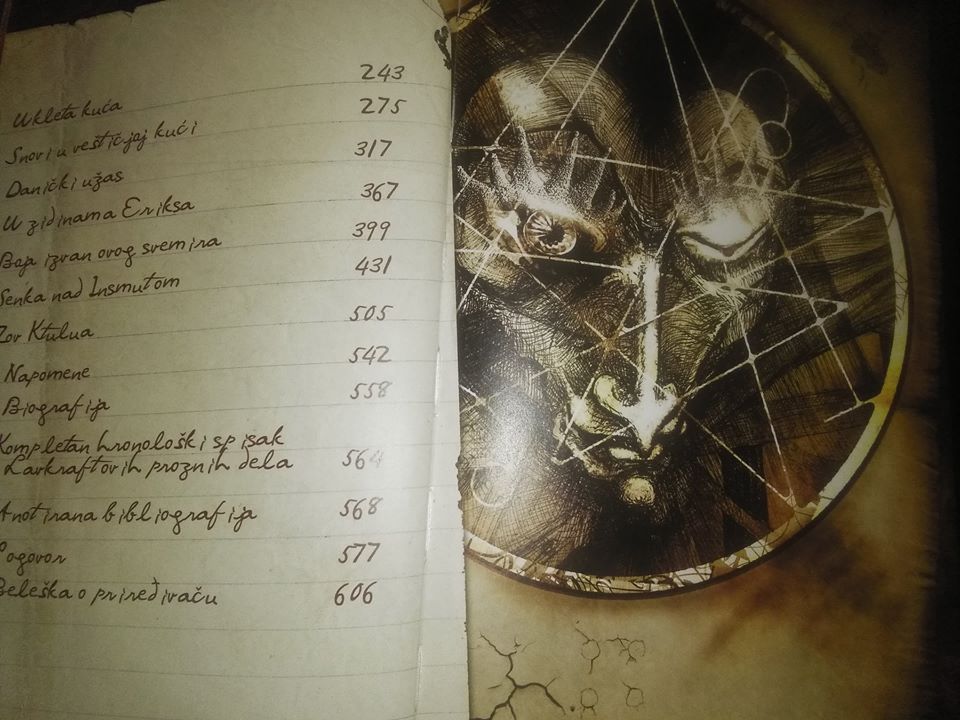 Ukleta kuća 243
Snovi u veštičjoj kući 275
Danički užas 317
U zidinama Eriksa 367
Boja izvan ovog svemira 399
Senka nad Insmutom 431
Zov Ktulua 505
Napomene 542
Biografija 558
Kompletan hronološki spisak
Lavkraftovih proznih dela 564
Anotirana bibliografija 568
Pogovor 577
Beleška o priređivaču 606